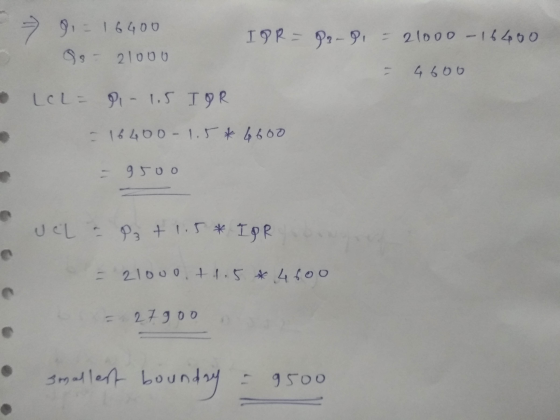 ⇒ Q1 = 16400
Q3 = 21000
IQR = Q3 - Q1 = 21000 - 16400
= 4600
LCL = Q1 - 1.5 IQR
= 16400 - 1.5 * 4600
= 9500
UCL = Q3 + 1.5 * IQR
= 21000 + 1.5 * 4600
= 27900
smallest boundry = 9500